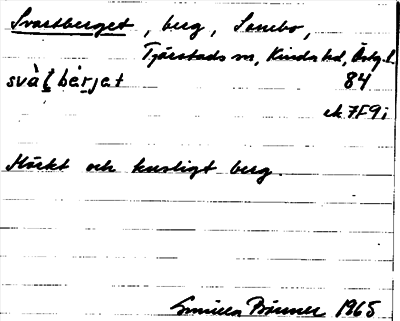 Svartberget, berg, Sonebo,
Tjärstads sn, Kinda hd, Östg. l.
svàt bèrjet 84
ek 7F9i
Mörkt och kusligt berg.
Gunilla Börner 1965